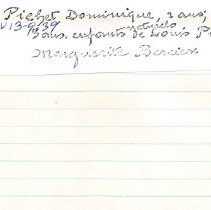 Pichet Dominique, 2 ans,
V 13-9/39
naturels
sous. enfants de Louis Pi
Marguerite Bercier